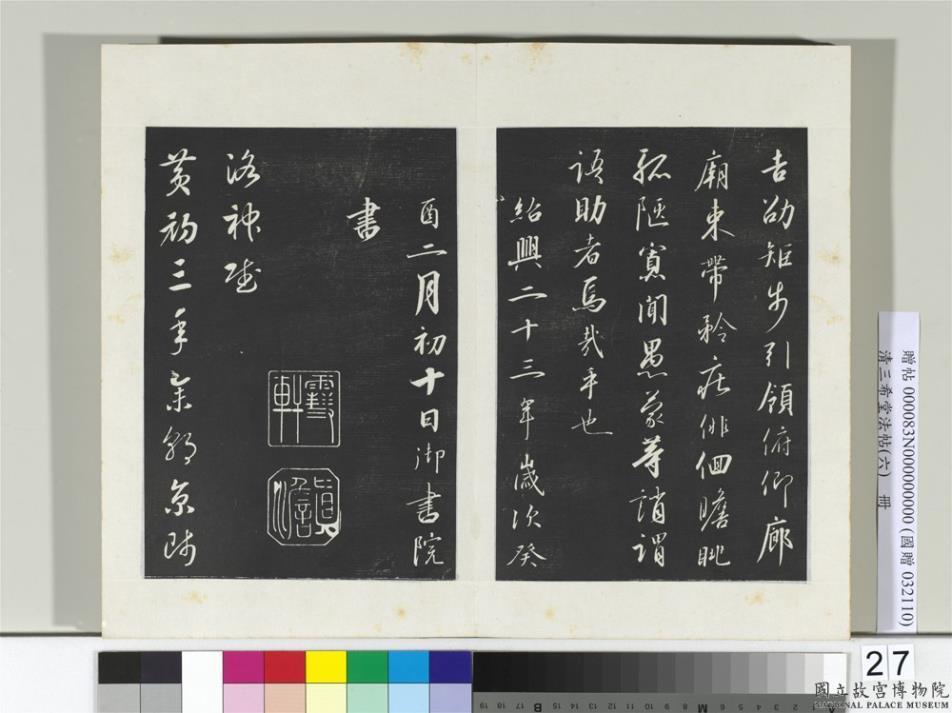 吉劭矩步引領俯仰廊
廟束帶矜莊俳佪瞻眺
孤陋寡聞愚蒙等誚謂
語助者焉哉乎也
紹興二十三年歲次癸
酉二月初十日御書院
書
洛神賦
黃初三年余朝京師
贈帖 000083N000000000 (國贈 032110)
清三希堂法帖(六) 冊
27
國立故宮博物院
NATIONAL PALACE MUSEUM